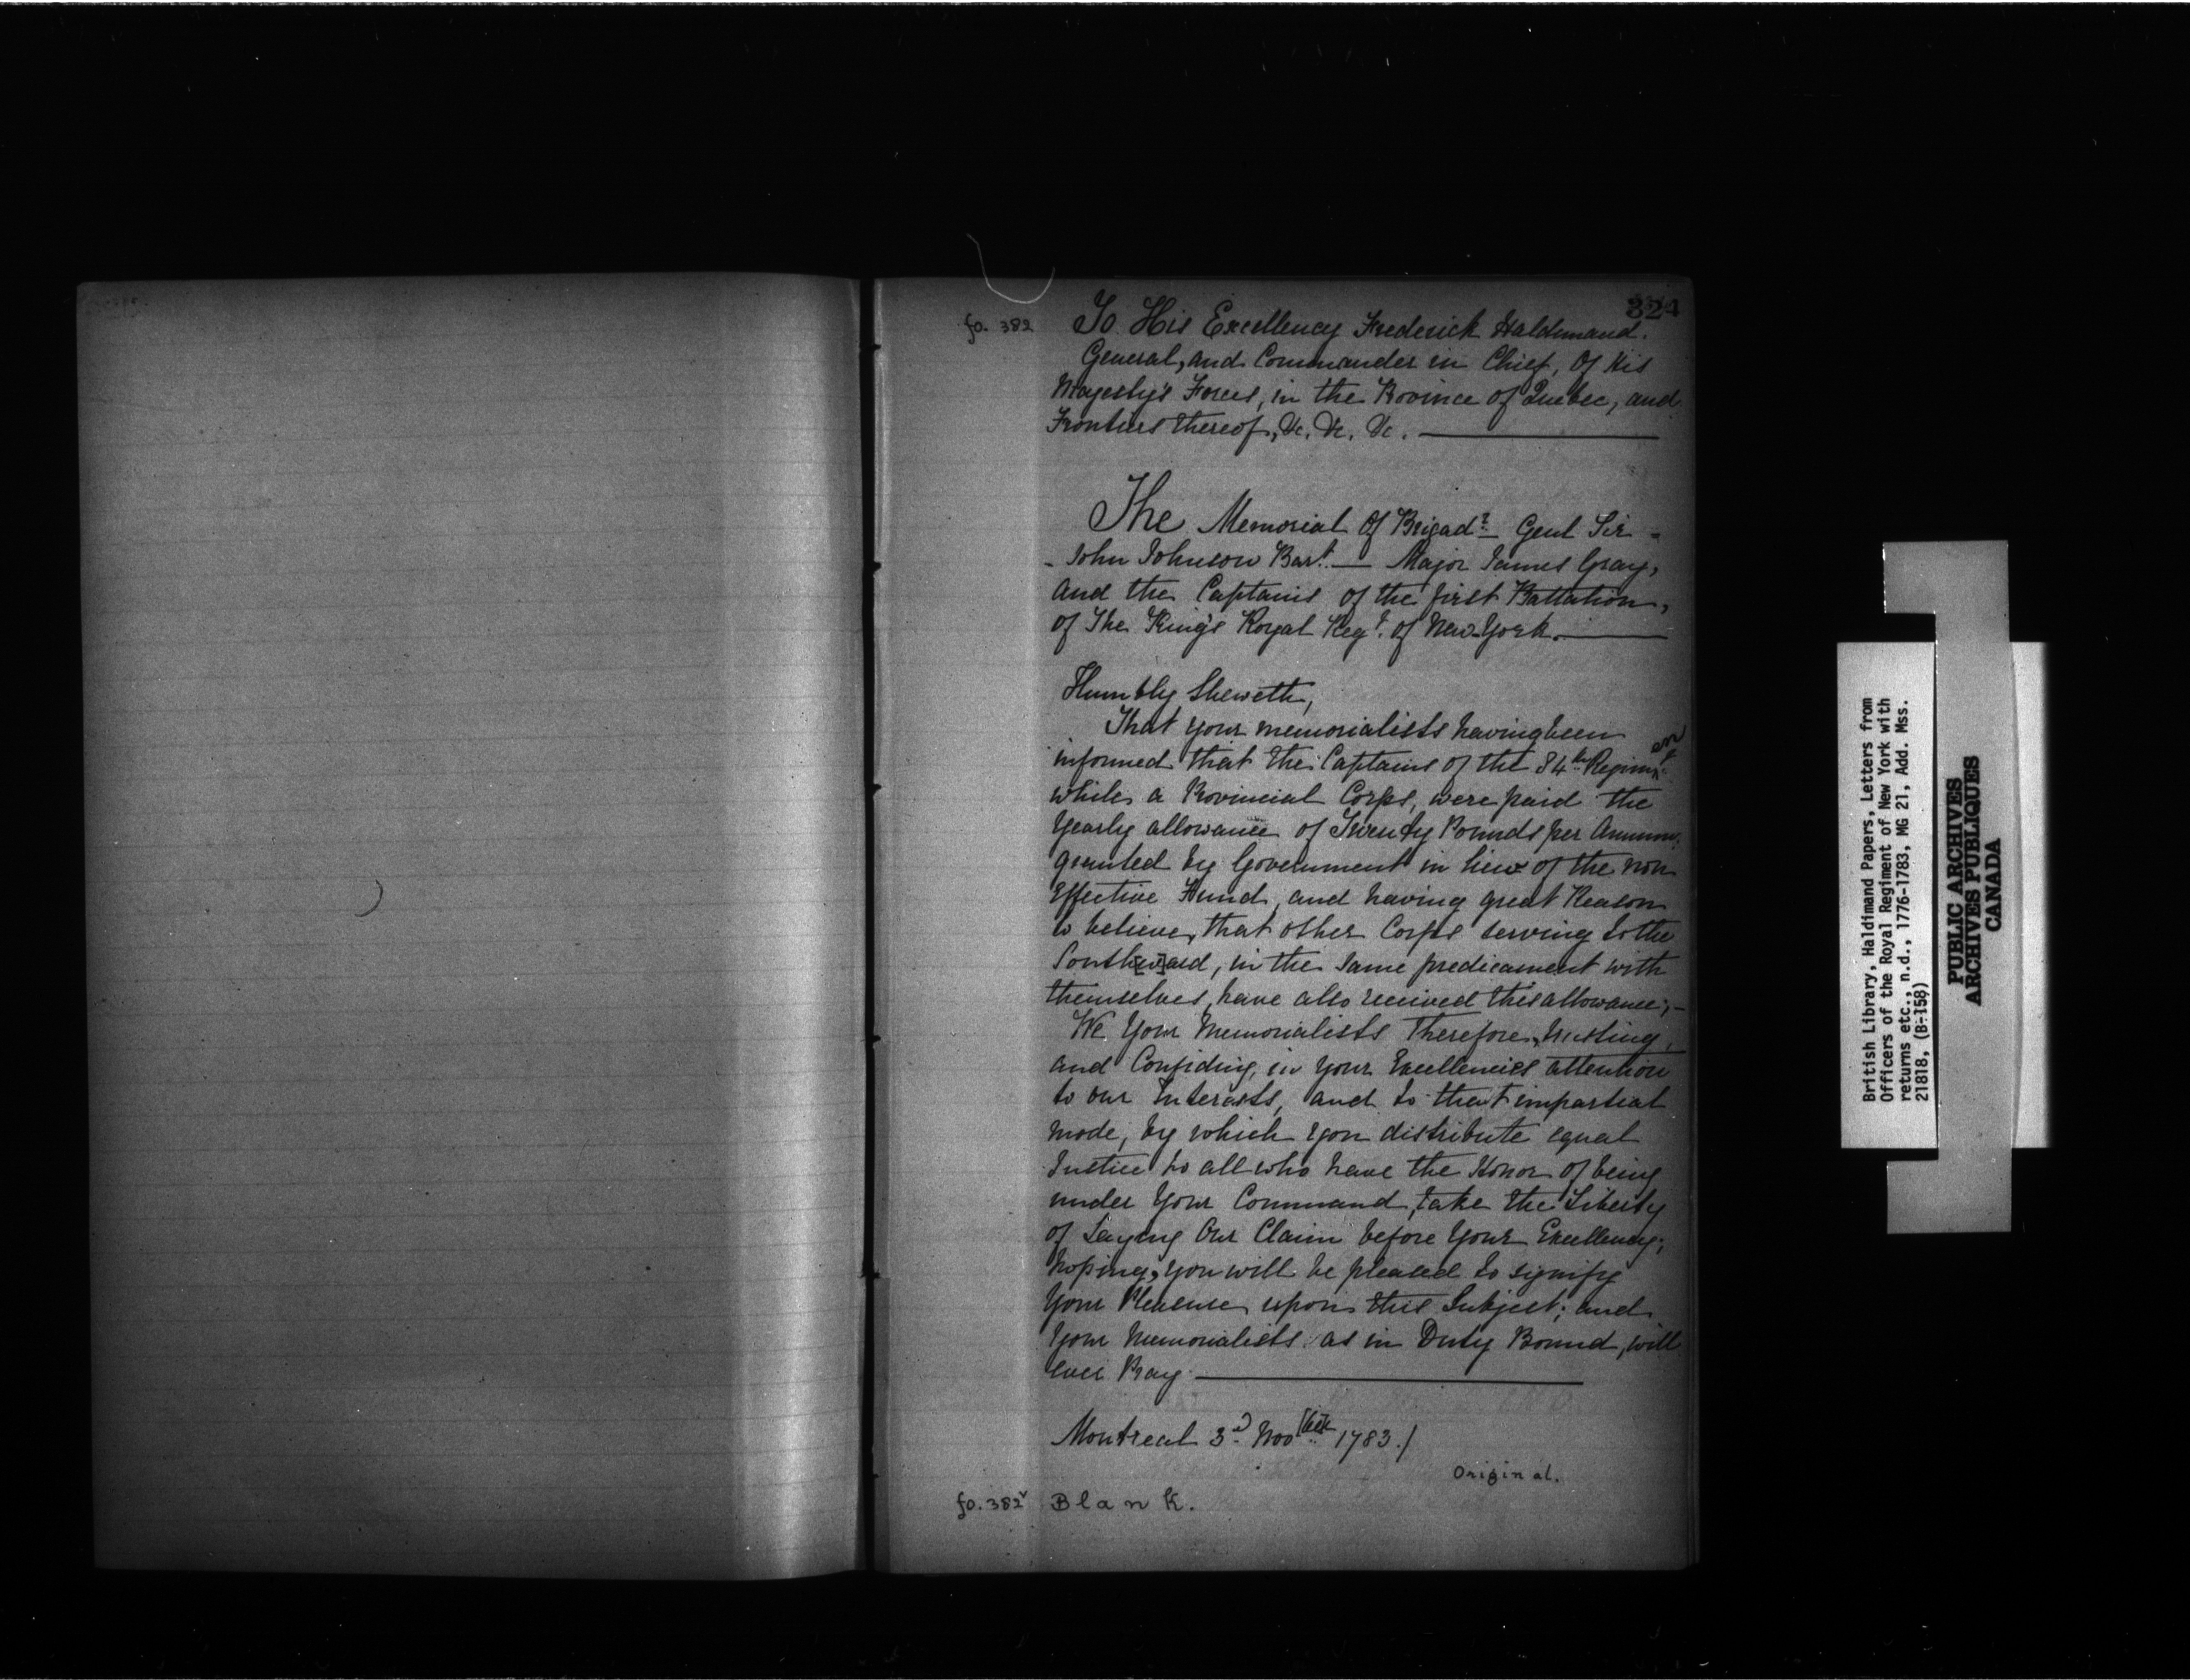 324
fo. 382 To His Excellency Frederick Haldimand.
General, and Commander in Chief, Of His
Majesty's Forces, in the Province of Quebec, and
Frontiers thereof, &c. &c. &c.
The Memorial Of Brigad.r Genl Sir -
- John Johnson Bar.t — Major James Gray,
And the Captains of the first Battalion,
of The King's Royal Reg.t of New York.
Humbly Sheweth,
That your memorialists having been
informed that the Captains of the 84th Regiment
while a Provincial Corps, were paid the
Yearly allowance of Twenty Pounds per Annum,
granted by Government in lieu of the non
Effective Fund, and having great Reason
to believe, that other Corps serving to the
South[w]ard, in the same predicament with
themselves, have also received this allowance; -
We Your Memorialists Therefore, trusting,
and Confiding, in Your Excellencies attention
to our Interests, and to that impartial
mode, by which you distribute equal
Justice to all who have the Honor of being
under Your Command, take the Liberty
of Laying Our Claim before Your Excellency;
hoping, you will be pleased to signify
Your Pleasure upon this Subject; and
Your Memorialists as in Duty Bound, will
ever Pray
Montreal 3.d Nov[be]r 1783./
Original.
fo. 382v Blank.
British Library, Haldimand Papers, Letters from
Officers of the Royal Regiment of New York with
returns etc., n.d., 1776-1783, MG 21, Add. Mss.
21818, (B-158)
PUBLIC ARCHIVES
ARCHIVES PUBLIQUES
CANADA